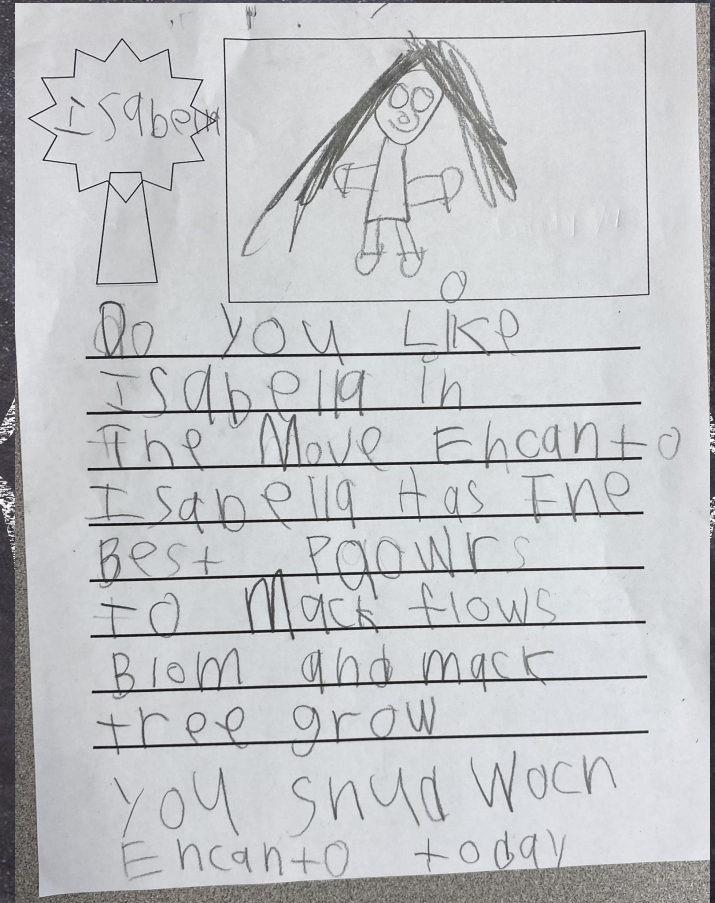 Isabella
Do you Like
Isabella in
The Move Encanto
Isabella Has The
Best Pgowrs
to Mack flows
Blom and mack
tree grow
you shud Woch
Encanto today